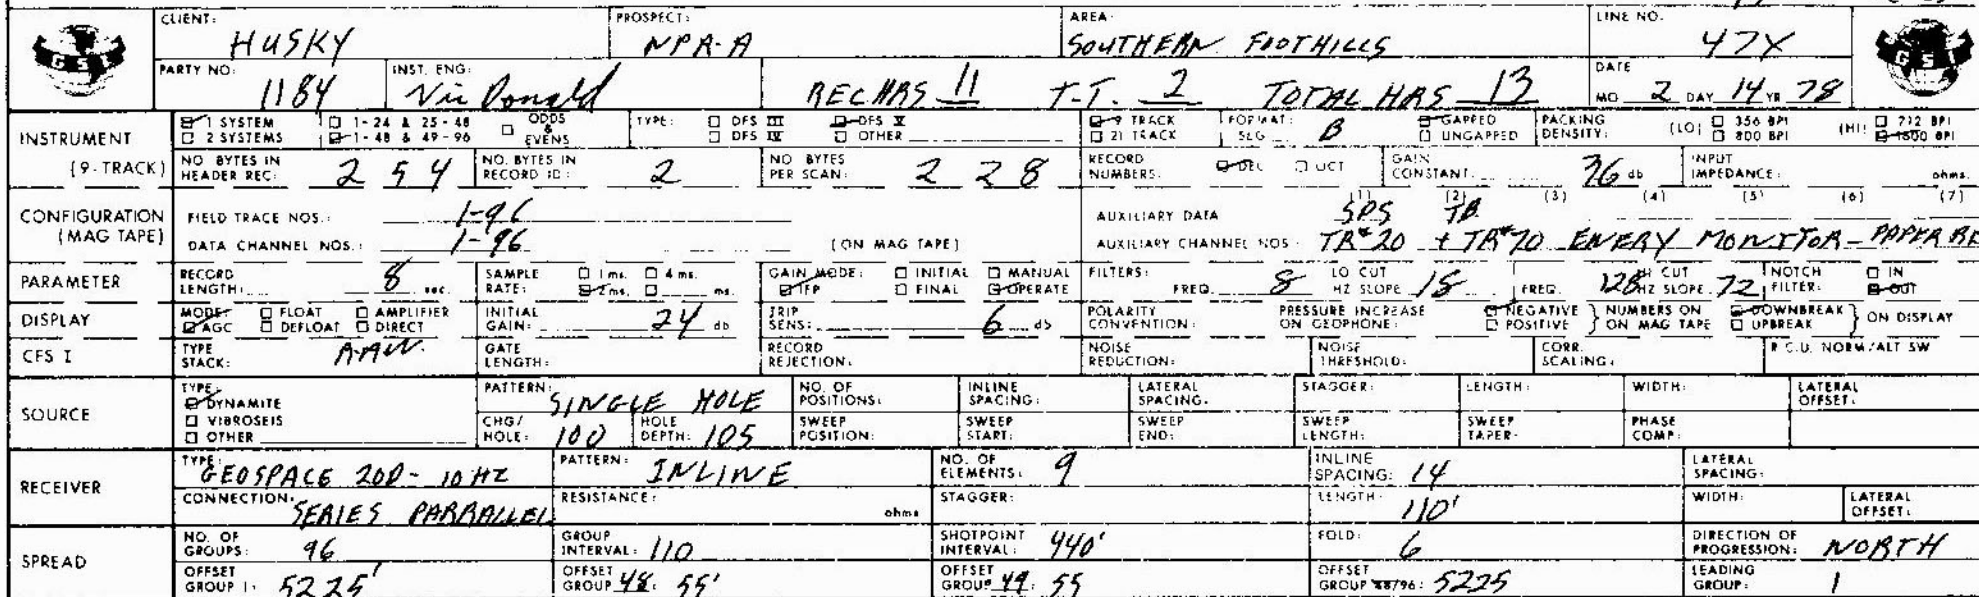 CLIENT: HUSKY PROSPECT: NPR-A AREA: SOUTHERN FOOTHILLS LINE NO. 47X
GSI
PARTY NO: 1184 INST. ENG: Vic Donald REC HRS 11 T.T. 2 TOTAL HRS 13 DATE MO 2 DAY 14 YR 78
GSI
INSTRUMENT (9-TRACK) 1 SYSTEM 1-24 & 25-48 ODDS & EVENS TYPE: DFS III DFS V 9 TRACK FORMAT: SEG B GAPPED PACKING DENSITY: (LO) 356 BPI (HI) 712 BPI
2 SYSTEMS 1-48 & 49-96 DFS IV OTHER 21 TRACK UNGAPPED 800 BPI 1600 BPI
NO BYTES IN HEADER REC: 254 NO. BYTES IN RECORD ID: 2 NO BYTES PER SCAN: 228 RECORD NUMBERS: DEC OCT GAIN CONSTANT: 36 db INPUT IMPEDANCE: ohms.
CONFIGURATION (MAG TAPE) FIELD TRACE NOS.: 1-96 AUXILIARY DATA (1) SPS (2) TB (3) (4) (5) (6) (7)
DATA CHANNEL NOS.: 1-96 (ON MAG TAPE) AUXILIARY CHANNEL NOS: TR#20 + TR#70 ENERY MONITOR - PAPER RE
PARAMETER RECORD LENGTH: 8 sec. SAMPLE RATE: 1 ms. 4 ms. 2 ms. ms. GAIN MODE: INITIAL MANUAL IFP FINAL OPERATE FILTERS: FREQ. 8 LO CUT HZ SLOPE 18 FREQ. 128 HI CUT HZ SLOPE 72 NOTCH FILTER: IN OUT
DISPLAY MODE: FLOAT AMPLIFIER AGC DEFLOAT DIRECT INITIAL GAIN: 24 db TRIP SENS: 6 db POLARITY CONVENTION: PRESSURE INCREASE ON GEOPHONE: NEGATIVE POSITIVE NUMBERS ON ON MAG TAPE DOWNBREAK UPBREAK ON DISPLAY
CFS I TYPE STACK: GATE LENGTH: RECORD REJECTION: NOISE REDUCTION: NOISE THRESHOLD: CORR. SCALING: R.C.U. NORM/ALT SW
SOURCE TYPE: DYNAMITE VIBROSEIS OTHER PATTERN: SINGLE HOLE NO. OF POSITIONS: INLINE SPACING: LATERAL SPACING: STAGGER: LENGTH: WIDTH: LATERAL OFFSET:
CHG/HOLE: 100 HOLE DEPTH: 105 SWEEP POSITION: SWEEP START: SWEEP END: SWEEP LENGTH: SWEEP TAPER: PHASE COMP:
RECEIVER TYPE: GEOSPACE 20D - 10 HZ PATTERN: INLINE NO. OF ELEMENTS: 9 INLINE SPACING: 14 LATERAL SPACING:
CONNECTION: SERIES PARRALLEL RESISTANCE: ohms STAGGER: LENGTH: 110' WIDTH: LATERAL OFFSET:
SPREAD NO. OF GROUPS: 96 GROUP INTERVAL: 110 SHOTPOINT INTERVAL: 440' FOLD: 6 DIRECTION OF PROGRESSION: NORTH
OFFSET GROUP 1: 5225' OFFSET GROUP 48: 55' OFFSET GROUP 49: 55 OFFSET GROUP 48/96: 5225 LEADING GROUP: 1